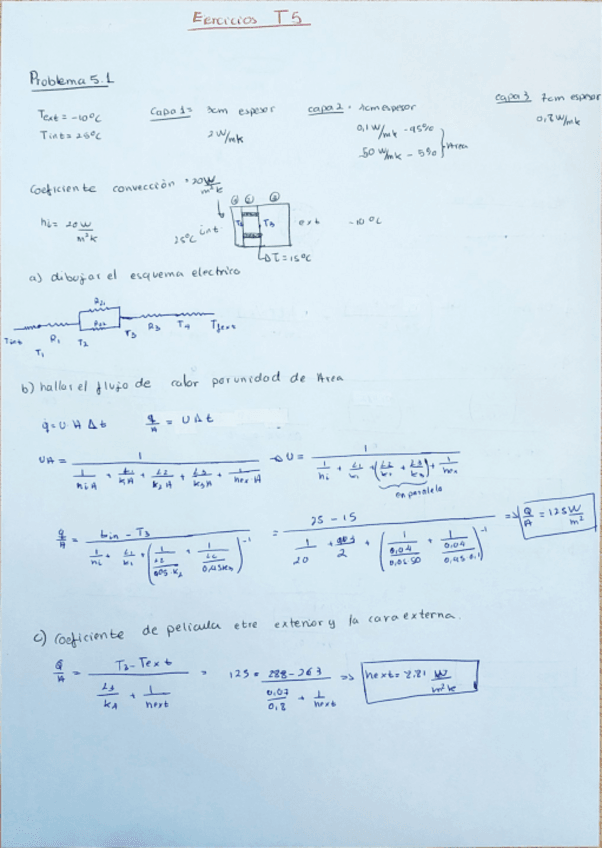 Eercicios T5
Problema 5.1
Text = -10ºC
Tint = 25ºC
Capa 1 = 3cm espesor
2 W/mk
capa 2 =
cm espesor
0,1 W/mk - 95%
50 W/mk - 5%
Area
capa 3 7cm espesor
0,8 W/mk
Coeficiente convección = 20 W/m²k
hi = 20 W/m²k
25ºC int
ext -10ºC
ΔT = 15ºC
a) dibujar el esquema electrico
R21
R22
Tint R1 T1 T2 T3 R3 T4 Text
b) hallar el flujo de calor por unidad de Area
q = U A Δt q/A = U Δt
UA = 1 / (1/hiA + L1/k1A + L2/k2A + L3/k3A + 1/hex A) → U = 1 / (1/hi + L1/k1 + (L2/k2 + L3/k3) + 1/hex)
en paralelo
q/A = (tin - T3) / (1/hi + L1/k1 + (1/(L2/0,05 k2) + 1/(L2/0,95 k2))^-1) = (25 - 15) / (1/20 + 0,03/2 + (1/(0,04/0,05 50) + 1/(0,04/0,95 0,1))^-1) ⇒ Q/A = 125 W/m²
c) Coeficiente de pelicula etre exterior y la cara externa.
Q/A = (T3 - Text) / (L3/kA + 1/hext) = 125 = (288 - 263) / (0,07/0,8 + 1/hext) ⇒ hext = 8.81 W/m²k